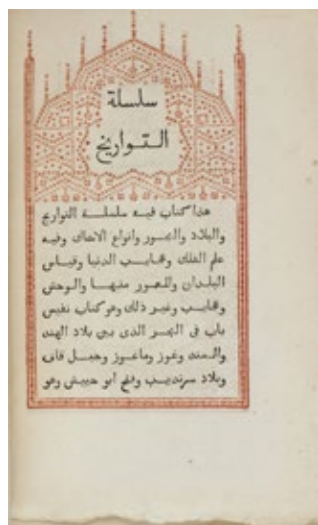 سلسلة
التواريخ
هذا كتاب فيه سلسلة التواريخ
والبلاد والبحور وانواع الاسماك وفيه
علم الفلك وعجايب الدنيا وقياس
البلدان والمعمور منها والوحش
وعجايب وغير ذلك وهو كتاب نفيس
باب في البحر الذي بين بلاد الهند
والسند وغوز وماغوز وجبل قاف
وبلاد سرنديب وفتح ابو حبيش وهو